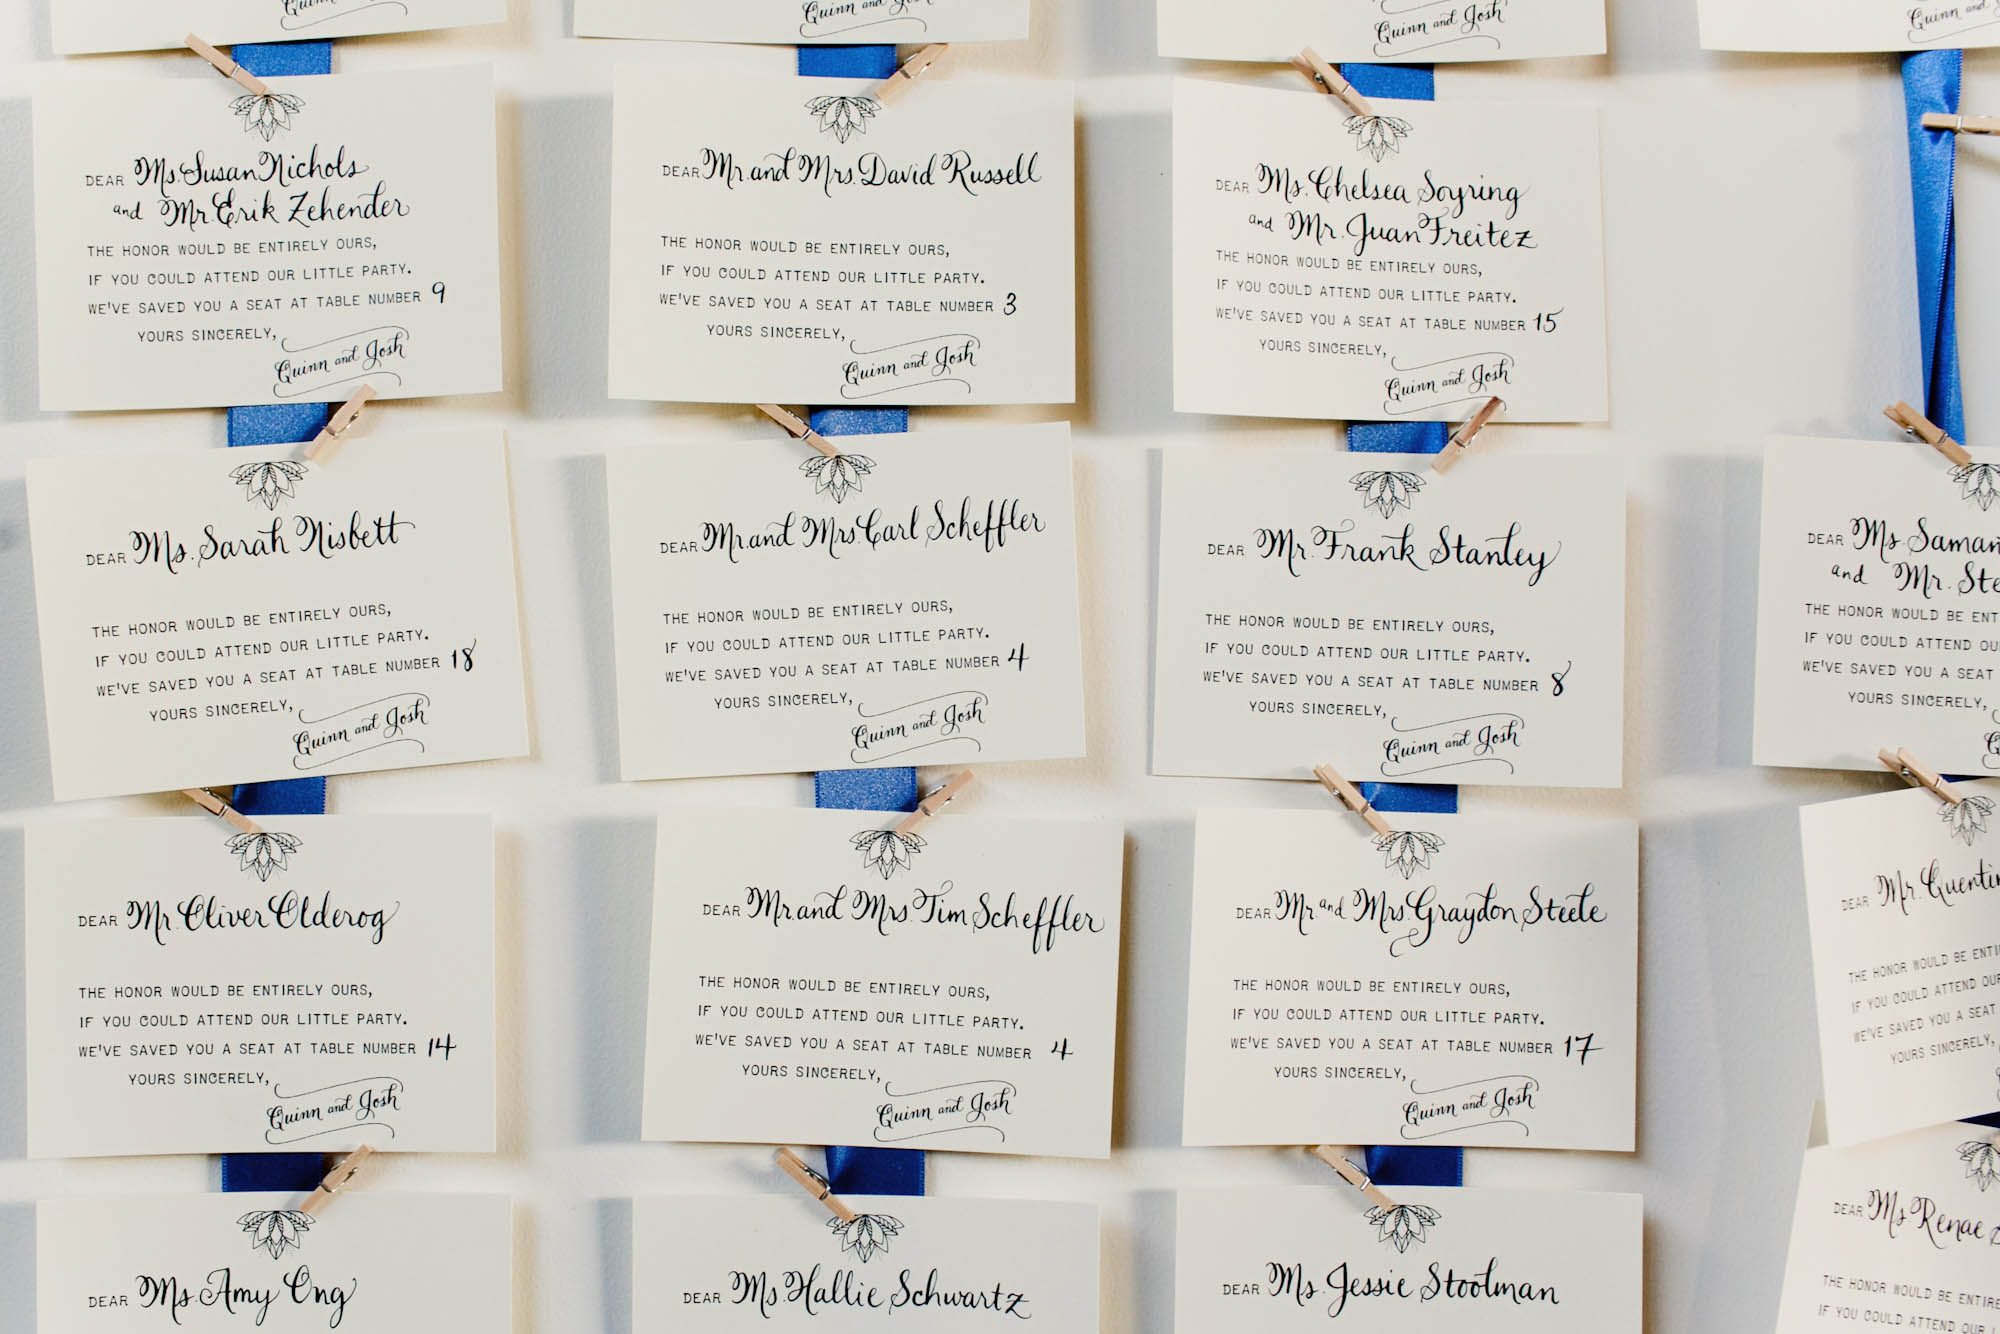 Quinn and Josh
Quinn and Josh
Quinn and Josh
Quinn and Josh
DEAR Ms. Susan Nichols
and Mr. Erik Zehender
THE HONOR WOULD BE ENTIRELY OURS,
IF YOU COULD ATTEND OUR LITTLE PARTY.
WE'VE SAVED YOU A SEAT AT TABLE NUMBER 9
YOURS SINCERELY,
Quinn and Josh
DEAR Mr. and Mrs. David Russell
THE HONOR WOULD BE ENTIRELY OURS,
IF YOU COULD ATTEND OUR LITTLE PARTY.
WE'VE SAVED YOU A SEAT AT TABLE NUMBER 3
YOURS SINCERELY,
Quinn and Josh
DEAR Ms. Chelsea Soyring
and Mr. Juan Freitez
THE HONOR WOULD BE ENTIRELY OURS,
IF YOU COULD ATTEND OUR LITTLE PARTY.
WE'VE SAVED YOU A SEAT AT TABLE NUMBER 15
YOURS SINCERELY,
Quinn and Josh
DEAR Ms. Sarah Nisbett
THE HONOR WOULD BE ENTIRELY OURS,
IF YOU COULD ATTEND OUR LITTLE PARTY.
WE'VE SAVED YOU A SEAT AT TABLE NUMBER 18
YOURS SINCERELY,
Quinn and Josh
DEAR Mr. and Mrs. Carl Scheffler
THE HONOR WOULD BE ENTIRELY OURS,
IF YOU COULD ATTEND OUR LITTLE PARTY.
WE'VE SAVED YOU A SEAT AT TABLE NUMBER 4
YOURS SINCERELY,
Quinn and Josh
DEAR Mr. Frank Stanley
THE HONOR WOULD BE ENTIRELY OURS,
IF YOU COULD ATTEND OUR LITTLE PARTY.
WE'VE SAVED YOU A SEAT AT TABLE NUMBER 8
YOURS SINCERELY,
Quinn and Josh
DEAR Ms. Saman
and Mr. Ste
THE HONOR WOULD BE ENT
IF YOU COULD ATTEND OU
WE'VE SAVED YOU A SEAT
YOURS SINCERELY,
DEAR Mr. Oliver Olderog
THE HONOR WOULD BE ENTIRELY OURS,
IF YOU COULD ATTEND OUR LITTLE PARTY.
WE'VE SAVED YOU A SEAT AT TABLE NUMBER 14
YOURS SINCERELY,
Quinn and Josh
DEAR Mr. and Mrs. Tim Scheffler
THE HONOR WOULD BE ENTIRELY OURS,
IF YOU COULD ATTEND OUR LITTLE PARTY.
WE'VE SAVED YOU A SEAT AT TABLE NUMBER 4
YOURS SINCERELY,
Quinn and Josh
DEAR Mr. and Mrs. Graydon Steele
THE HONOR WOULD BE ENTIRELY OURS,
IF YOU COULD ATTEND OUR LITTLE PARTY.
WE'VE SAVED YOU A SEAT AT TABLE NUMBER 17
YOURS SINCERELY,
Quinn and Josh
DEAR Mr. Quentin
THE HONOR WOULD BE ENTI
IF YOU COULD ATTEND OUR
WE'VE SAVED YOU A SEAT
YOURS SINCERELY,
DEAR Ms. Amy Ong
DEAR Ms. Hallie Schwartz
DEAR Ms. Jessie Stootman
DEAR Ms. Renae
THE HONOR WOULD BE ENTIRE
IF YOU COULD ATTEND OUR